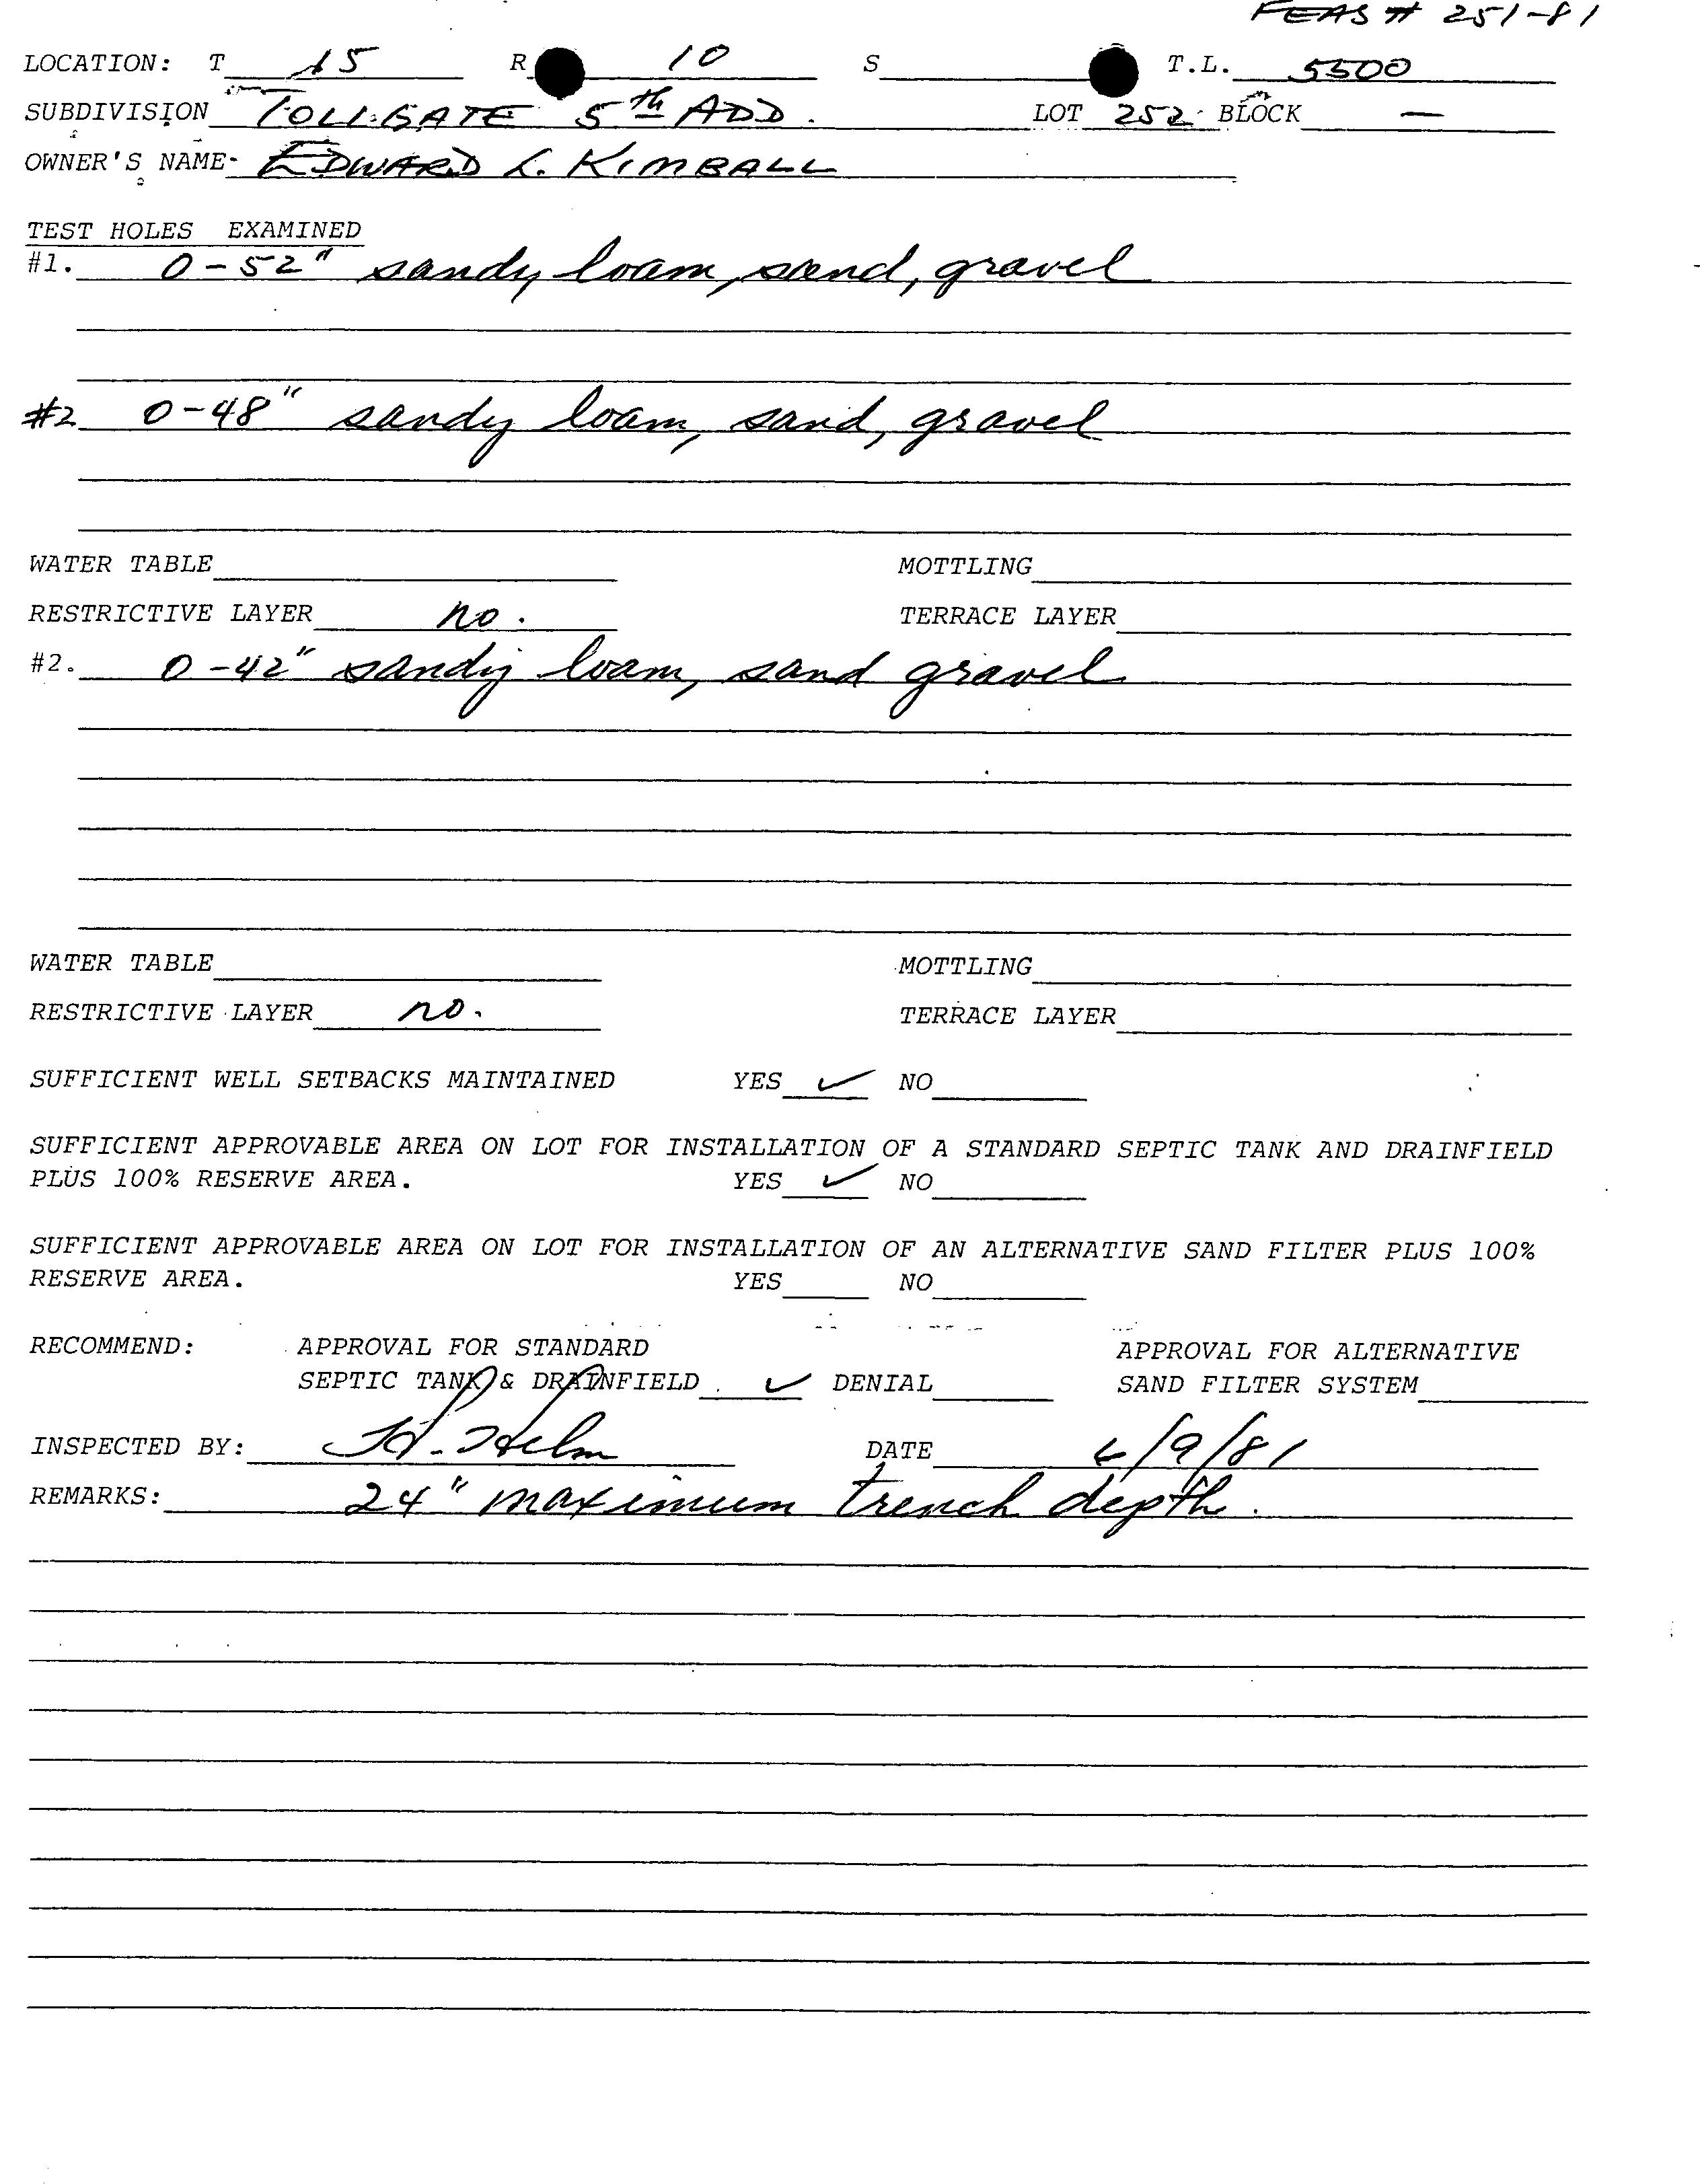 FEAS # 251-81
LOCATION: T 15 R 10 S T.L. 5500
SUBDIVISION TOLLGATE 5th ADD. LOT 252 BLOCK —
OWNER'S NAME EDWARD L. KIMBALL
TEST HOLES EXAMINED
#1. 0-52" sandy loam, sand, gravel
#2 0-48" sandy loam, sand, gravel
WATER TABLE MOTTLING
RESTRICTIVE LAYER no. TERRACE LAYER
#2. 0-42" sandy loam, sand gravel
WATER TABLE MOTTLING
RESTRICTIVE LAYER no. TERRACE LAYER
SUFFICIENT WELL SETBACKS MAINTAINED YES ✓ NO
SUFFICIENT APPROVABLE AREA ON LOT FOR INSTALLATION OF A STANDARD SEPTIC TANK AND DRAINFIELD
PLUS 100% RESERVE AREA. YES ✓ NO
SUFFICIENT APPROVABLE AREA ON LOT FOR INSTALLATION OF AN ALTERNATIVE SAND FILTER PLUS 100%
RESERVE AREA. YES NO
RECOMMEND: APPROVAL FOR STANDARD APPROVAL FOR ALTERNATIVE
SEPTIC TANK & DRAINFIELD ✓ DENIAL SAND FILTER SYSTEM
INSPECTED BY: Helm DATE 6/9/81
REMARKS: 24" maximum trench depth.